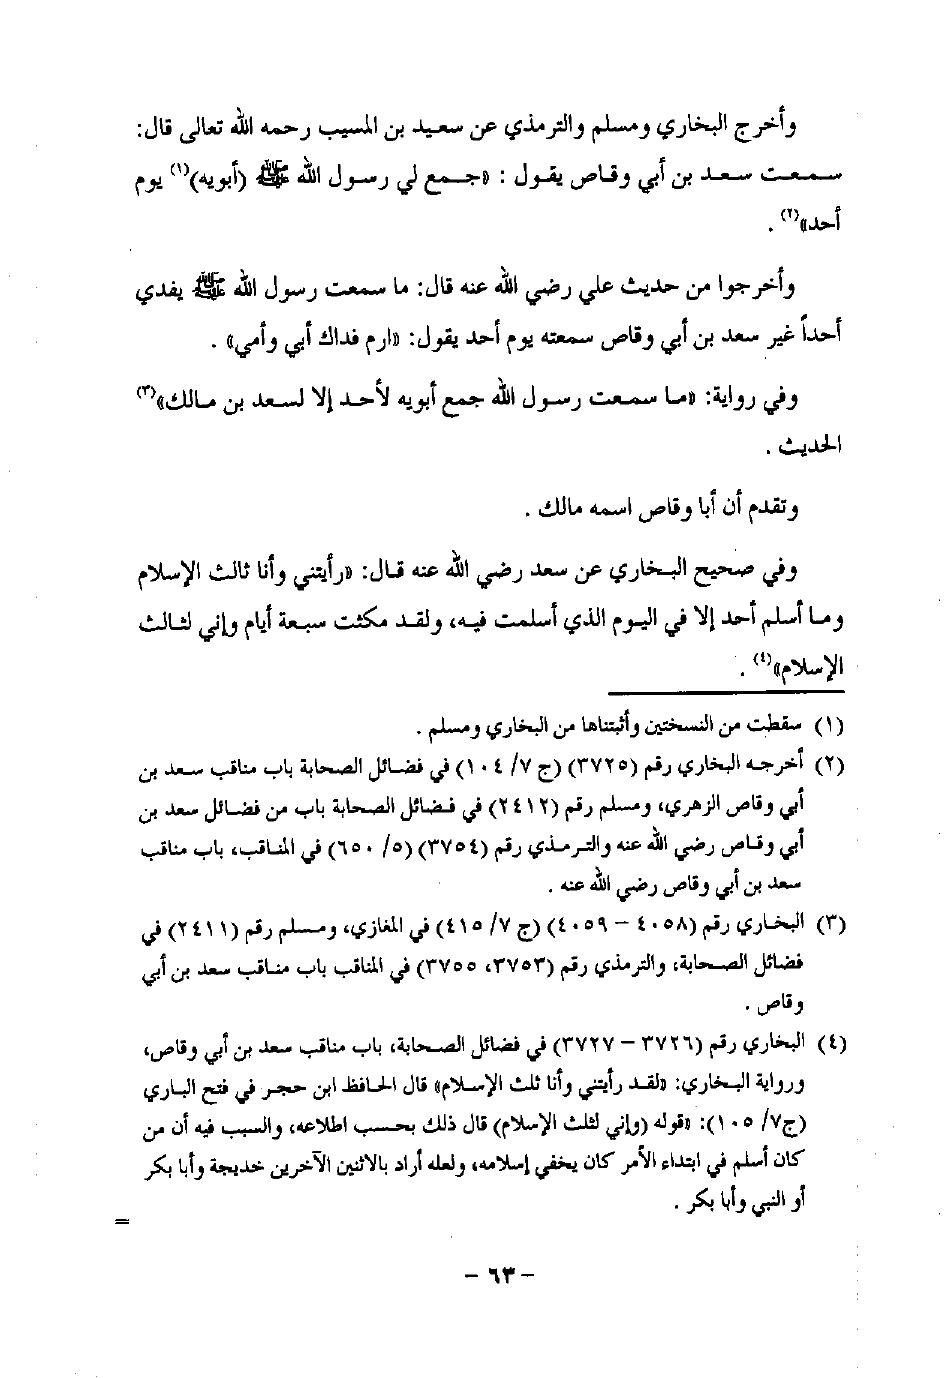 وأخرج البخاري ومسلم والترمذي عن سعيد بن المسيب رحمه الله تعالى قال:
سمعت سعد بن أبي وقاص يقول : «جمع لي رسول الله ﷺ (أبويه)(١) يوم
أحد»(٢) .
وأخرجوا من حديث علي رضي الله عنه قال: ما سمعت رسول الله ﷺ يفدي
أحداً غير سعد بن أبي وقاص سمعته يوم أحد يقول: «ارم فداك أبي وأمي» .
وفي رواية: «ما سمعت رسول الله جمع أبويه لأحد إلا لسعد بن مالك»(٣)
الحديث .
وتقدم أن أبا وقاص اسمه مالك .
وفي صحيح البخاري عن سعد رضي الله عنه قال: «رأيتني وأنا ثالث الإسلام
وما أسلم أحد إلا في اليوم الذي أسلمت فيه، ولقد مكثت سبعة أيام وإني لثالث
الإسلام»(٤) .
(١) سقطت من النسختين وأثبتناها من البخاري ومسلم .
(٢) أخرجه البخاري رقم (٣٧٢٥) (ج ٧/ ١٠٤) في فضائل الصحابة باب مناقب سعد بن
أبي وقاص الزهري، ومسلم رقم (٢٤١٢) في فضائل الصحابة باب من فضائل سعد بن
أبي وقاص رضي الله عنه والترمذي رقم (٣٧٥٤) (٥/ ٦٥٠) في المناقب، باب مناقب
سعد بن أبي وقاص رضي الله عنه .
(٣) البخاري رقم (٤٠٥٨ – ٤٠٥٩) (ج ٧/ ٤١٥) في المغازي، ومسلم رقم (٢٤١١) في
فضائل الصحابة، والترمذي رقم (٣٧٥٣، ٣٧٥٥) في المناقب باب مناقب سعد بن أبي
وقاص .
(٤) البخاري رقم (٣٧٢٦ – ٣٧٢٧) في فضائل الصحابة، باب مناقب سعد بن أبي وقاص،
ورواية البخاري: «لقد رأيتني وأنا ثلث الإسلام» قال الحافظ ابن حجر في فتح الباري
(ج٧/ ١٠٥): «قوله (وإني لثلث الإسلام) قال ذلك بحسب اطلاعه، والسبب فيه أن من
كان أسلم في ابتداء الأمر كان يخفي إسلامه، ولعله أراد بالاثنين الآخرين خديجة وأبا بكر
أو النبي وأبا بكر .
=
– ٦٣ –